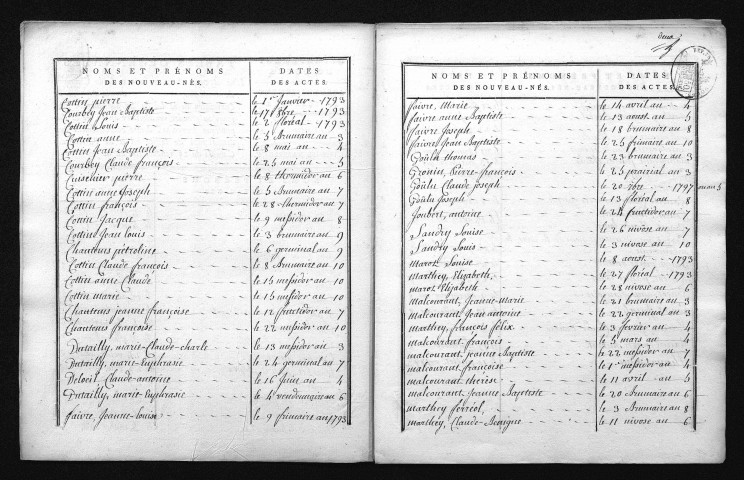 NOMS ET PRÉNOMS
DES NOUVEAU-NÉS.
DATES
DES ACTES.
Cottin pierre le 1er Janvier 1793
Courbey Jean Baptiste le 17 8bre 1793
Cottin Louis le 2 floréal 1793
Cottin anne le 5 Brumaire an 3
Cottin Jean Baptiste le 8 mai an 4
Courbey Claude françois le 25 mai an 5
Cuisenier pierre le 8 thermidor an 6
Cottin anne Joseph le 5 Brumaire an 7
Cottin françois le 28 thermidor an 7
Cottin Jacque le 9 messidor an 8
Cottin Jean Louis le 3 brumaire an 9
Chanteurs pétroline le 6 germinal an 9
Cottin Claude françois le 8 Brumaire an 10
Cottin anne Claude le 15 messidor an 10
Cottin marie le 15 messidor an 10
Chanteurs jeanne françoise le 12 fructidor an 7
Chanteurs françoise le 22 messidor an 10
Dutailly, marie-Claude-charle le 13 messidor an 3
Dutailly, marie-Euphrasie le 24 germinal an 7
Deloeil, Claude-antoine le 16 Juin an 4
Dutailly, marie-Euphrasie le 4 vendemiaire an 6
faivre, Jeanne-louise le 9 frimaire an 1793
deux
NOMS ET PRÉNOMS
DES NOUVEAU-NÉS.
DATES
DES ACTES.
faivre, Marie le 14 avril an 4
faivre anne Baptiste le 13 aoust an 5
faivre Joseph le 18 brumaire an 8
faivre Jean Baptiste le 25 frimaire an 10
Goulu thomas le 23 brumaire an 3
Gronin, Pierre-françois le 25 prairial an 3
Goulu Claude Joseph le 20 Xbre 1797 ou an 5
Goulu Joseph le 13 floréal an 8
Joubert, antoine le 24 fructidor an 7
Landry Louise le 26 nivose an 7
Landry Louis le 3 nivose an 10
Maroz Louise le 8 aoust 1793
Marthey, Elizabeth le 27 floréal 1793
maroz Elizabeth le 28 nivose an 6
malcourant, Jeanne-Marie le 21 brumaire an 3
malcourant, Jean antoine le 22 germinal an 3
marthey, françois félix le 3 février an 4
malcourant françois le 5 mars an 4
malcourant, jeanne Baptiste le 22 messidor an 7
malcourant, françoise le 1er messidor an 4
malcourant thérèse le 11 avril an 5
malcourant, Jeanne Baptiste le 20 Brumaire an 6
marthey ferréol le 3 Brumaire an 8
marthey, Claude-Benigne le 11 nivose an 6